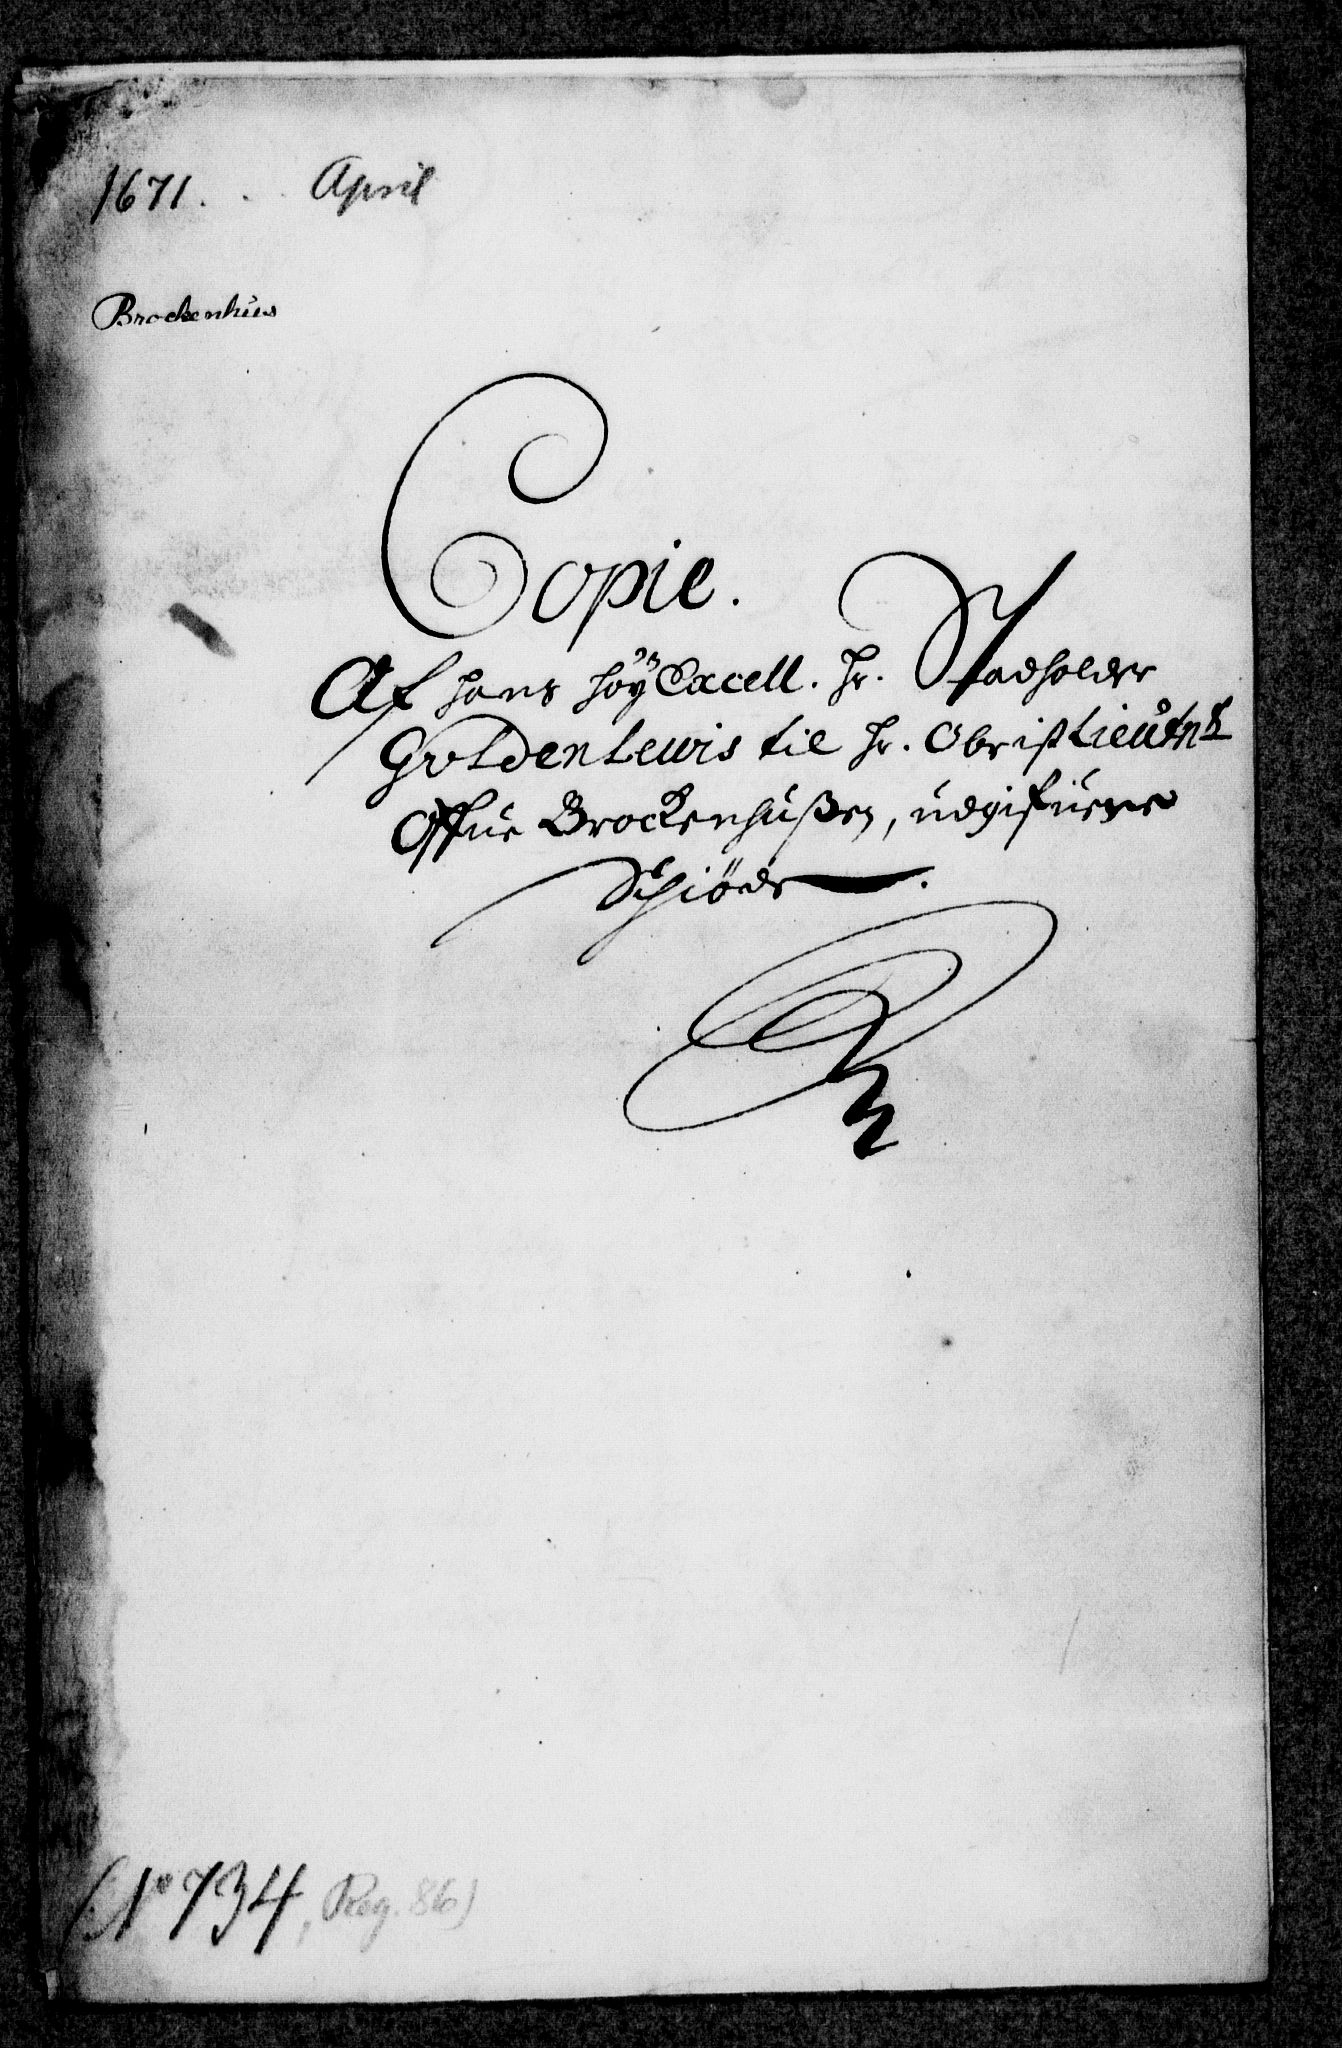 1671. . April
Brockenhüs
Copie.
Af hans höÿ Excell. hr. Stadholder
Gÿldenlewis til hr. Obrist Lieütnt
Offue Brockenhüßen, üdgifuene
Schiöde.
(No 734, Reg. 86)